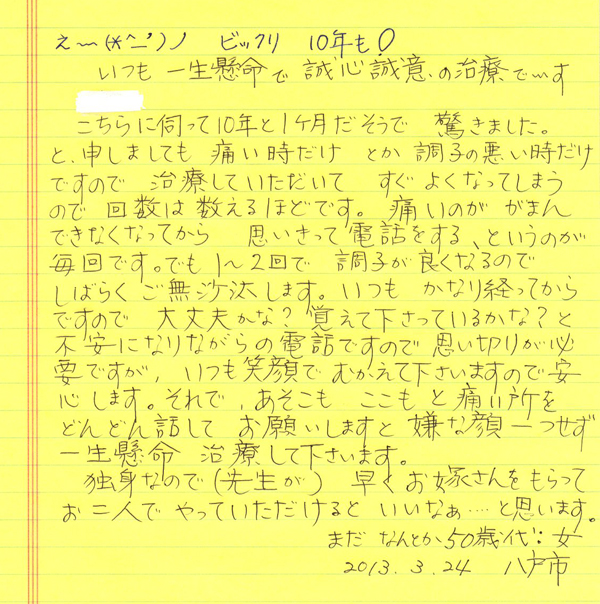 え〜(*^_^')ノ ビックリ 10年も!
いつも 一生懸命で 誠心誠意の治療で〜す
こちらに伺って10年と1ヶ月だそうで 驚きました。
と、申しましても 痛い時だけ とか 調子の悪い時だけ
ですので 治療していただいて すぐよくなってしまう
ので 回数は 数えるほどです。痛いのが がまん
できなくなってから 思いきって電話をする、というのが
毎回です。でも 1〜2回で 調子が良くなるので
しばらく ご無沙汰します。いつも かなり経ってから
ですので 大丈夫かな?覚えて下さっているかな?と
不安になりながらの電話ですので 思い切りが必
要ですが、いつも笑顔で むかえて下さいますので安
心します。それで、あそこも ここも と痛い所を
どんどん話して お願いしますと 嫌な顔一つせず
一生懸命 治療して下さいます。
独身なので(先生が) 早くお嫁さんをもらって
お二人で やっていただけると いいなぁ…と思います。
まだ なんとか 50歳代:女
2013.3.24 八戸市